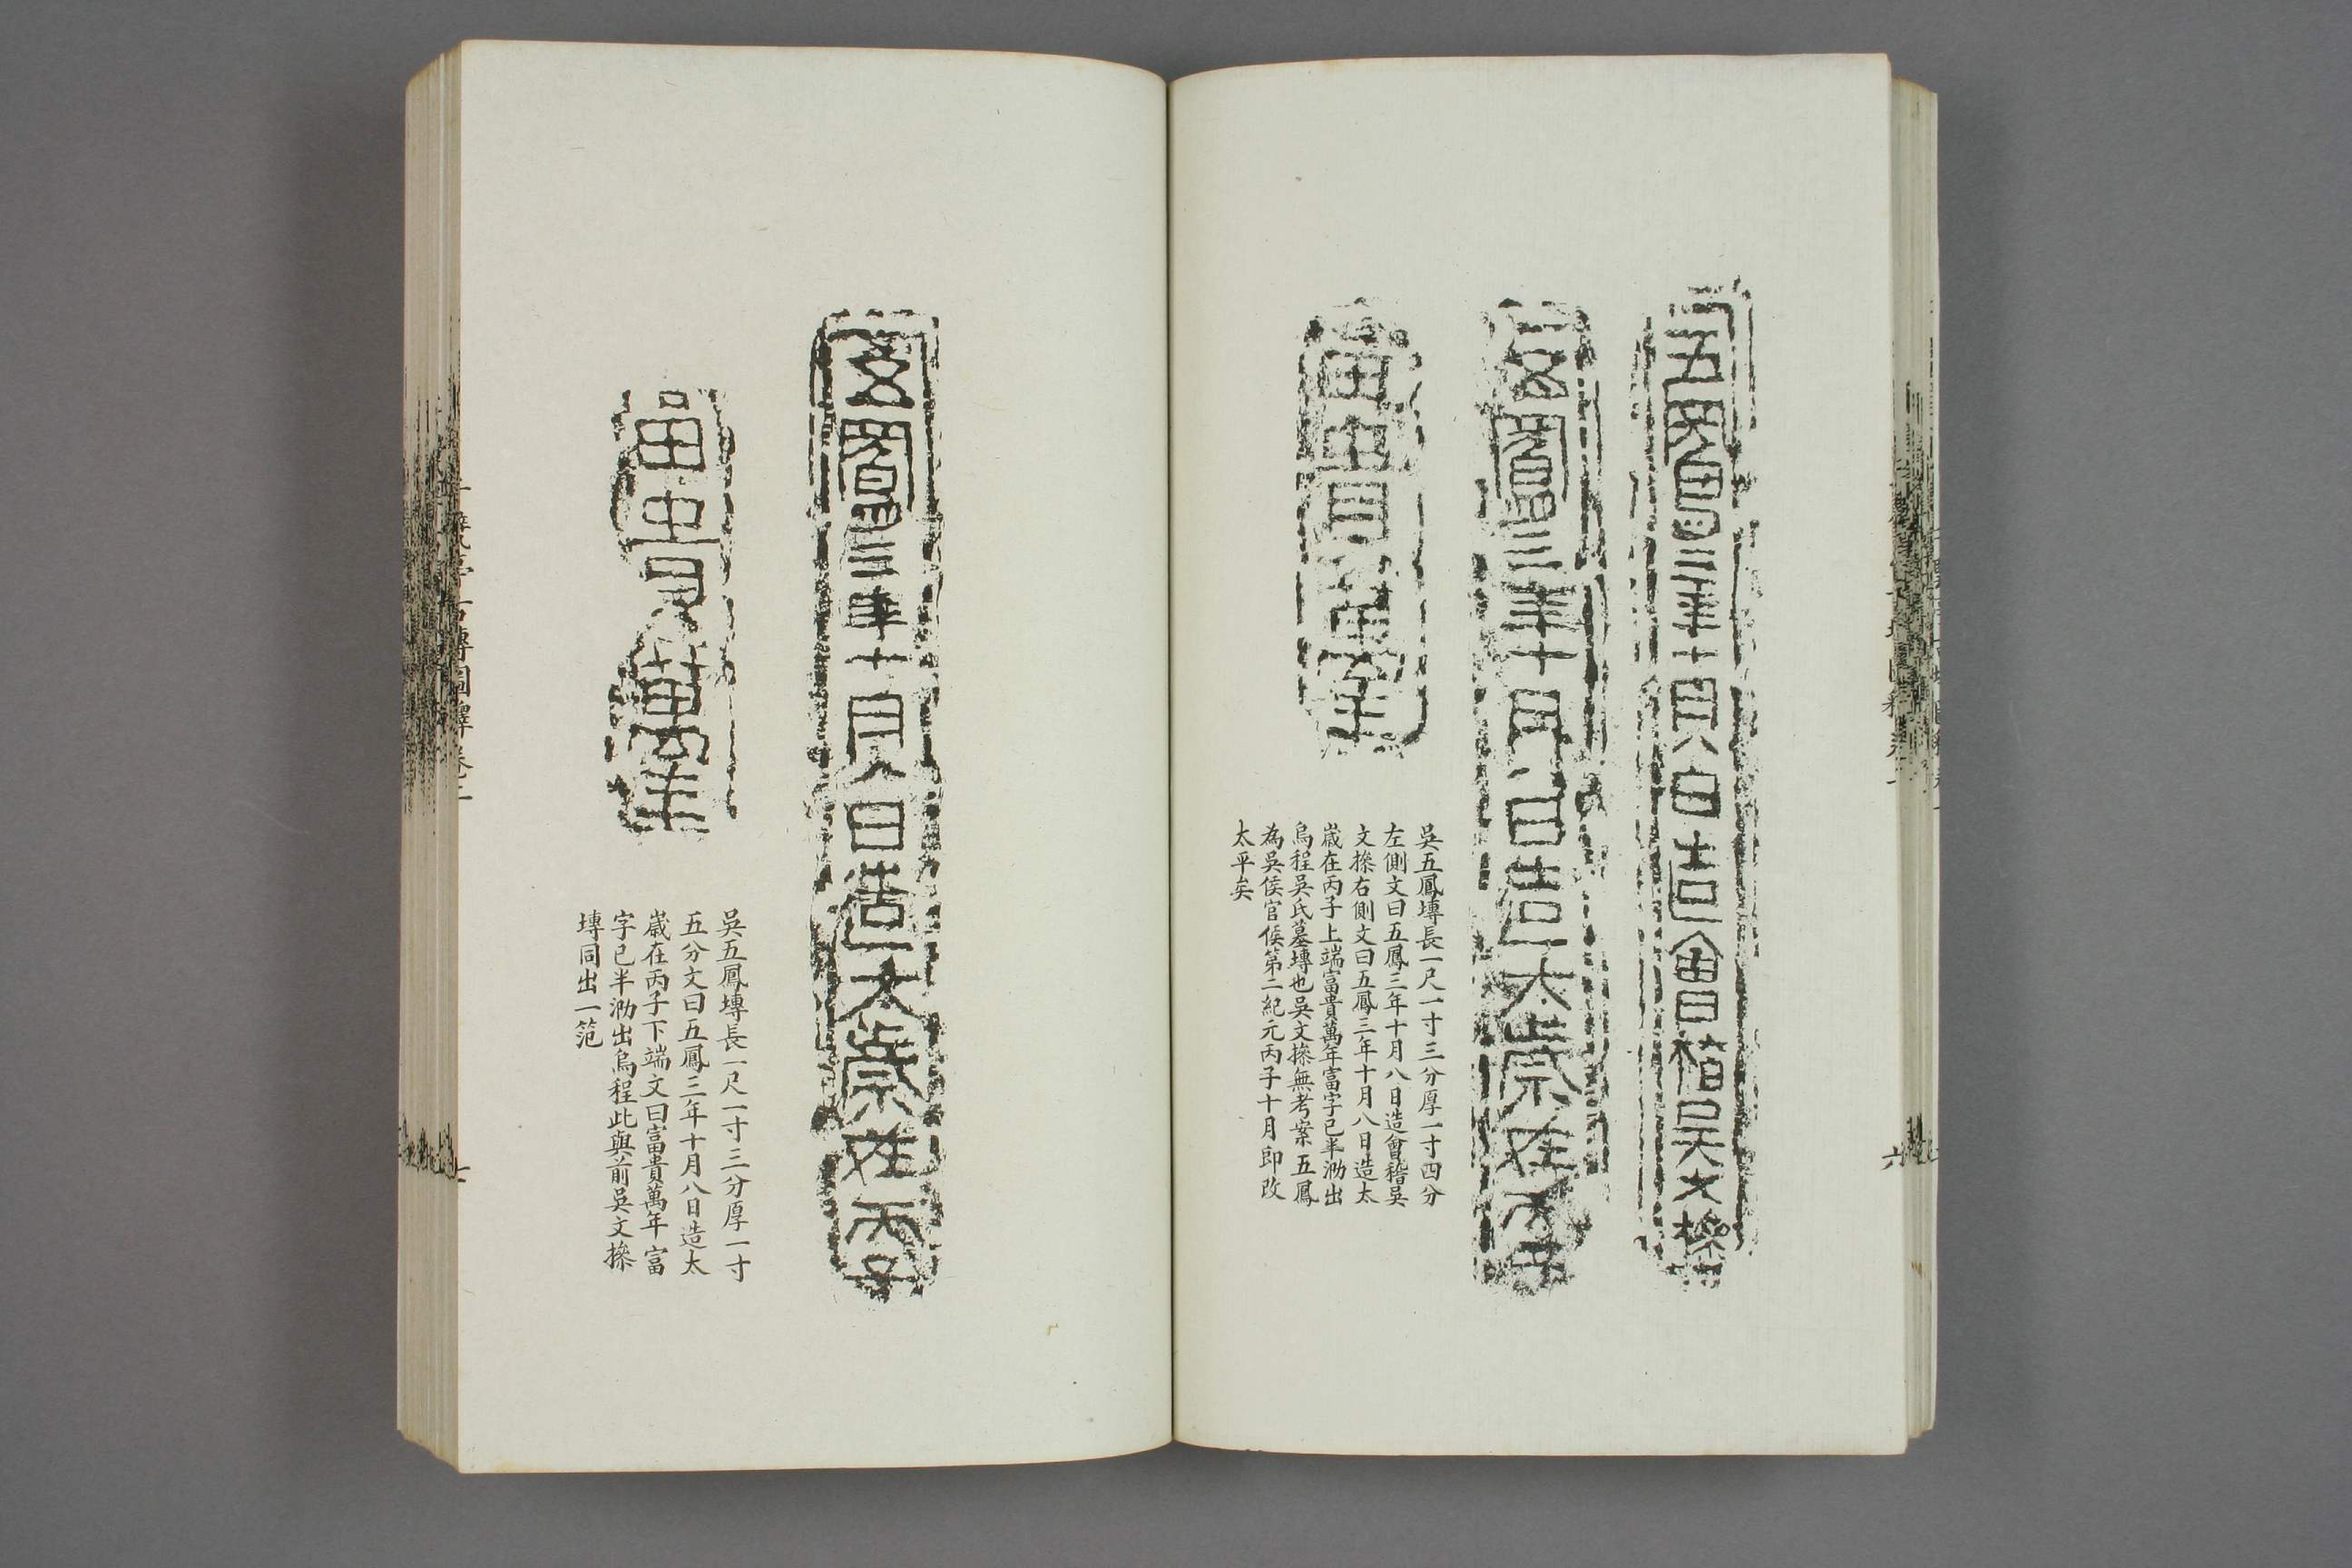 五鳳三年十月八日造會稽吳文㯥
五鳳三年十月八日造太歲在丙子
富貴萬年
吳五鳳塼長一尺一寸三分厚一寸四分
左側文曰五鳳三年十月八日造會稽吳
文㯥右側文曰五鳳三年十月八日造太
歲在丙子上端富貴萬年富字已半泐出
烏程吳氏墓塼也吳文㯥無考案五鳳
為吳侯官侯第二紀元丙子十月即改
太平矣
六
五鳳三年十月八日造太歲在丙子
富貴萬年
吳五鳳塼長一尺一寸三分厚一寸
五分文曰五鳳三年十月八日造太
歲在丙子下端文曰富貴萬年富
字已半泐出烏程此與前吳文㯥
塼同出一范